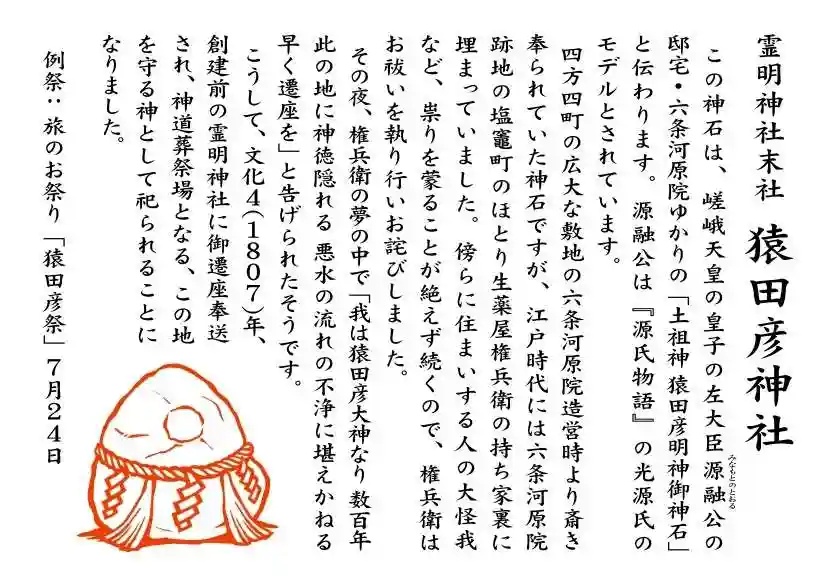 霊明神社末社 猿田彦神社
この神石は、嵯峨天皇の皇子の左大臣源融公の
みなもとのとおる
邸宅・六条河原院ゆかりの「土祖神 猿田彦明神御神石」
と伝わります。 源融公は『源氏物語』の光源氏の
モデルとされています。
四方四町の広大な敷地の六条河原院造営時より斎き
奉られていた神石ですが、江戸時代には六条河原院
跡地の塩竈町のほとり生薬屋権兵衛の持ち家裏に
埋まっていました。傍らに住まいする人の大怪我
など、祟りを蒙ることが絶えず続くので、権兵衛は
お祓いを執り行いお詫びしました。
その夜、権兵衛の夢の中で「我は猿田彦大神なり 数百年
此の地に神徳隠れる 悪水の流れの不浄に堪えかねる
早く遷座を」と告げられたそうです。
こうして、文化4(1807)年、
創建前の霊明神社に御遷座奉送
され、神道葬祭場となる、この地
を守る神として祀られることに
なりました。
例祭:旅のお祭り「猿田彦祭」7月24日